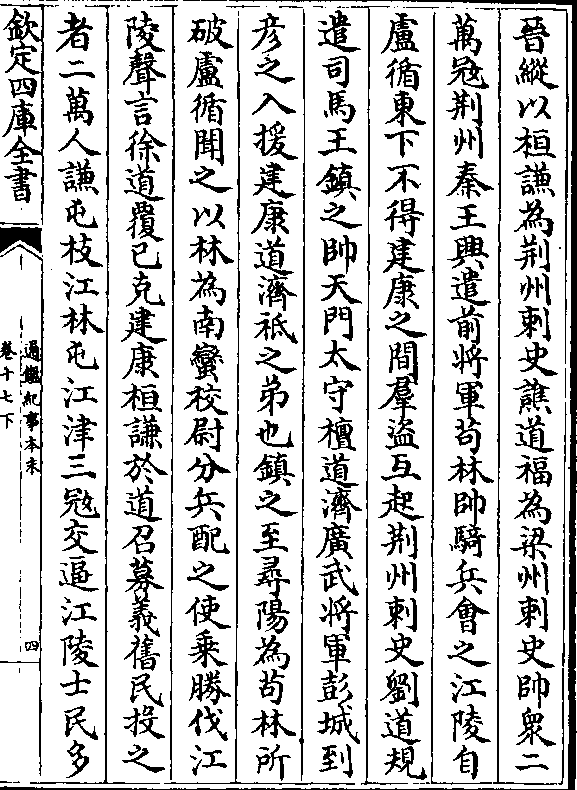 晉縱以桓謙為荆州刺史譙道福為梁州刺史帥衆二
萬㓂荆州秦王興遣前將軍苟林帥騎兵會之江陵自
盧循東下不得建康之間羣盜互起荆州刺史劉道規
遣司馬王鎮之帥天門太守檀道濟廣武將軍彭城到
彦之入援建康道濟祗之弟也鎮之至尋陽為苟林所
破盧循聞之以林為南蠻校尉分兵配之使乗勝伐江
陵聲言徐道覆已克建康桓謙於道召募義舊民投之
者二萬人謙屯枝江林屯江津三㓂交逼江陵士民多
欽定四庫全書
通鑑紀事本末
卷十七下
四